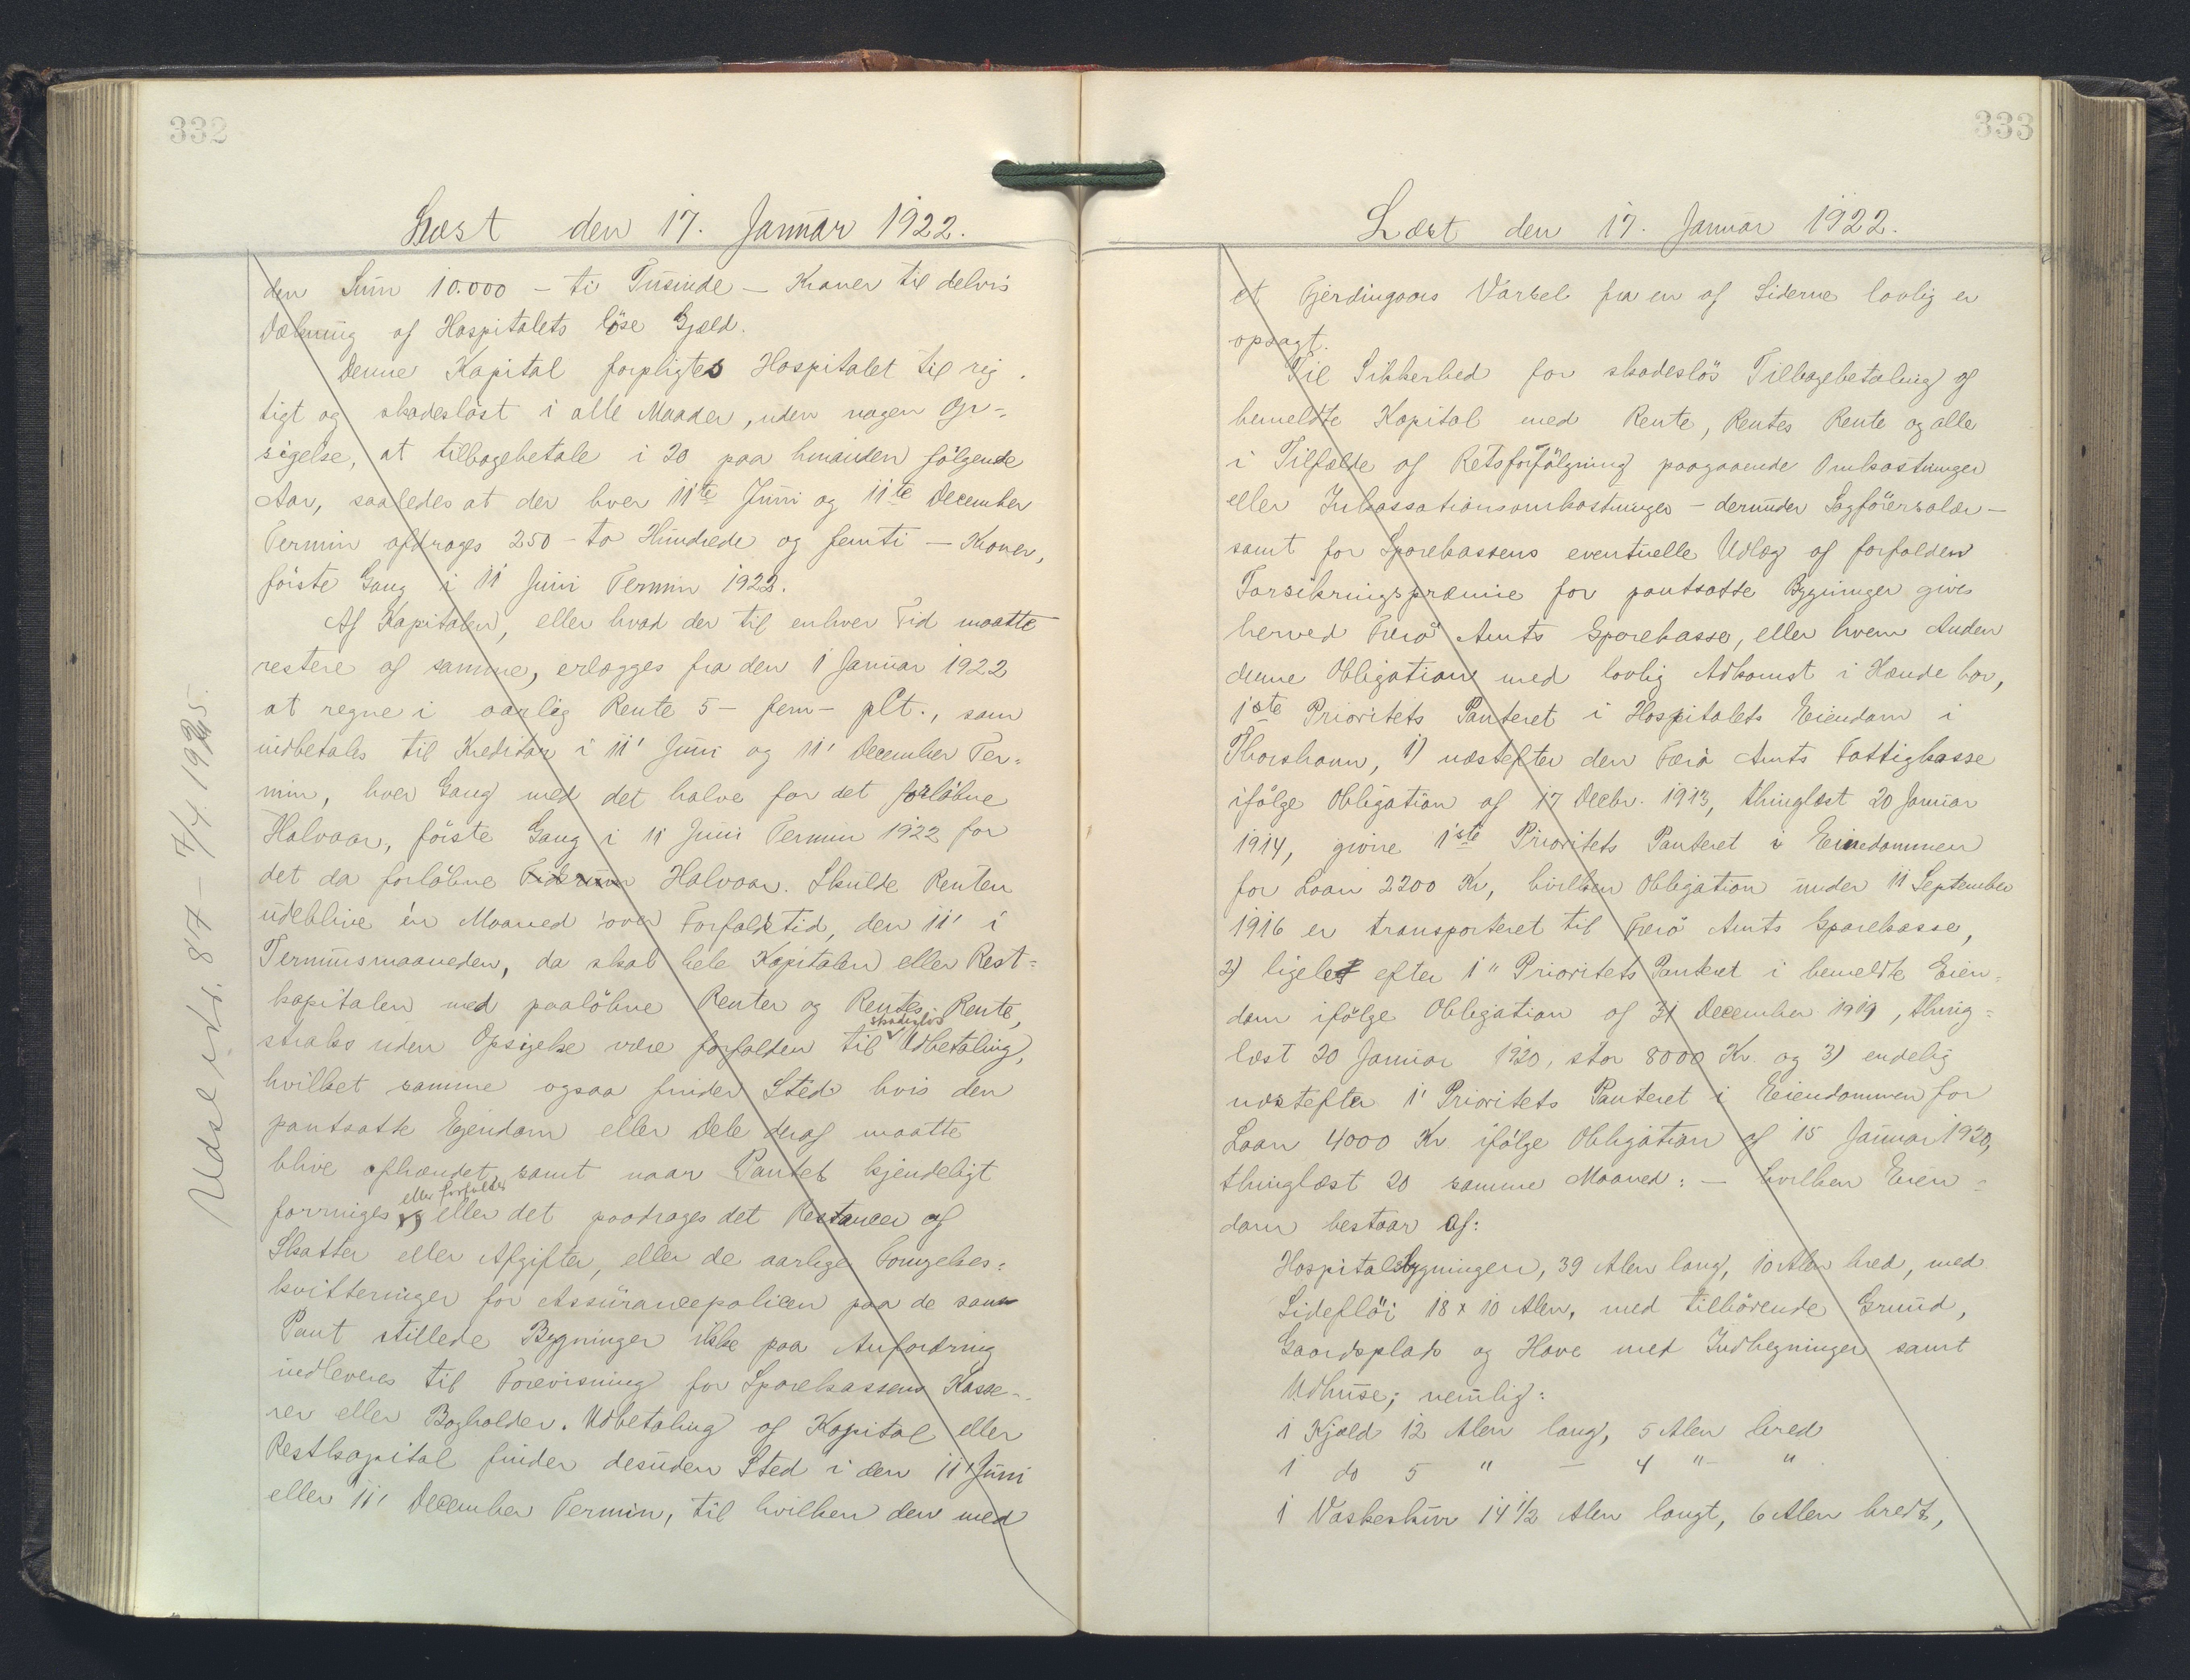 332
Læst den 17. Januar 1922.
den Sum 10.000 - ti Tusinde - Kroner til delvis
Dækning af Hospitalets löse Gjæld.
Denne Kapital forpligtes Hospitalet til rig-
tigt og skadeslöst i alle Maader, uden nogen Op-
sigelse, at tilbagebetale i 20 paa hinanden fölgende
Aar, saaledes at der hver 11te Juni og 11te December
Termin afdrages 250 - to Hundrede og femti - Kroner,
förste Gang i 11 Juni Termin 1922.
Af Kapitalen, eller hvad der til enhver Tid maatte
restere af samme, erlægges fra den 1 Januar 1922
at regne i aarlig Rente 5 - fem - pCt., som
indbetales til Kreditor i 11' Juni og 11' December Ter-
min, hver Gang med det halve for det forlöbne
Halvaar, förste Gang i 11 Juni Termin 1922 for
det da forlöbne Tidsrum Halvaar. Skulde Renten
udeblive én Maaned over Forfaldstid, den 11' i
Terminsmaaneden, da skal hele Kapitalen eller Rest-
kapitalen med paalöbne Renter og Rentes Rente,
straks uden Opsigelse være forfalden til skadeslös Udbetaling,
hvilket samme ogsaa finder Sted hvis den
pantsatte Ejendom eller Dele deraf maatte
blive afhændet, samt naar Pantet kjendeligt
forringes eller forfalder eller det paadrages det Restancer af
Skatter eller Afgifter, eller de aarlige Fornyelses-
kvitteringer for Assurancepolicen paa de som
Pant stillede Bygninger ikke paa Anfordring
indleveres til Forevisning for Sparekassens Kasse-
rer eller Bogholder. Udbetaling af Kapital eller
Restkapital finder desuden Sted i den 11' Juni
eller 11' December Termin, til hvilken den med
Udsl. 87 - 7/4. 1925.
333
Læst den 17. Januar 1922.
et Fjerdingaars Varsel fra en af Siderne lovlig er
opsagt.
Til Sikkerhed for skadeslös Tilbagebetaling af
bemeldte Kapital med Rente, Rentes Rente og alle
i Tilfælde af Retsforfölgning paagaaende Omkostninger
eller Inkassationsomkostninger - derunder Sagförersalær -
samt for Sparekassens eventuelle Udlæg af forfalden
Forsikringspræmie for pantsatte Bygninger gives
herved Færö Amts Sparekasse, eller hvem Anden
denne Obligation med lovlig Adkomst i Hænde har,
1ste Prioritets Panteret i Hospitalets Eiendom i
Thorshavn, 1) næstefter den Færö Amts Fattigkasse
ifölge Obligation af 17 Decbr. 1913, thinglæst 20 Januar
1914, givne 1ste Prioritets Panteret i Eiendommen
for Laan 2200 Kr, hvilken Obligation under 11 September
1916 er transporteret til Færö Amts Sparekasse,
2) ligeledes efter 1" Prioritets Panteret i bemeldte Eien-
dom ifölge Obligation af 31 December 1919, thing-
læst 20 Januar 1920, stor 8000 Kr. og 3) endelig
næstefter 1' Prioritets Panteret i Eiendommen for
Laan 4000 Kr ifölge Obligation af 15 Januar 1920,
thinglæst 20 samme Maaned: - hvilken Eien-
dom bestaar af:
Hospitalsbygningen, 39 Alen lang, 10 Alen bred, med
Sideflöi 18 x 10 Alen, med tilhörende Grund,
Gaardsplads og Have med Indhegninger samt
Udhuse; nemlig:
1 Kjæld 12 Alen lang, 5 Alen bred
1 do 5 " - 4 " - "
1 Vaskeskur 14 1/2 Alen langt, 6 Alen bredt,